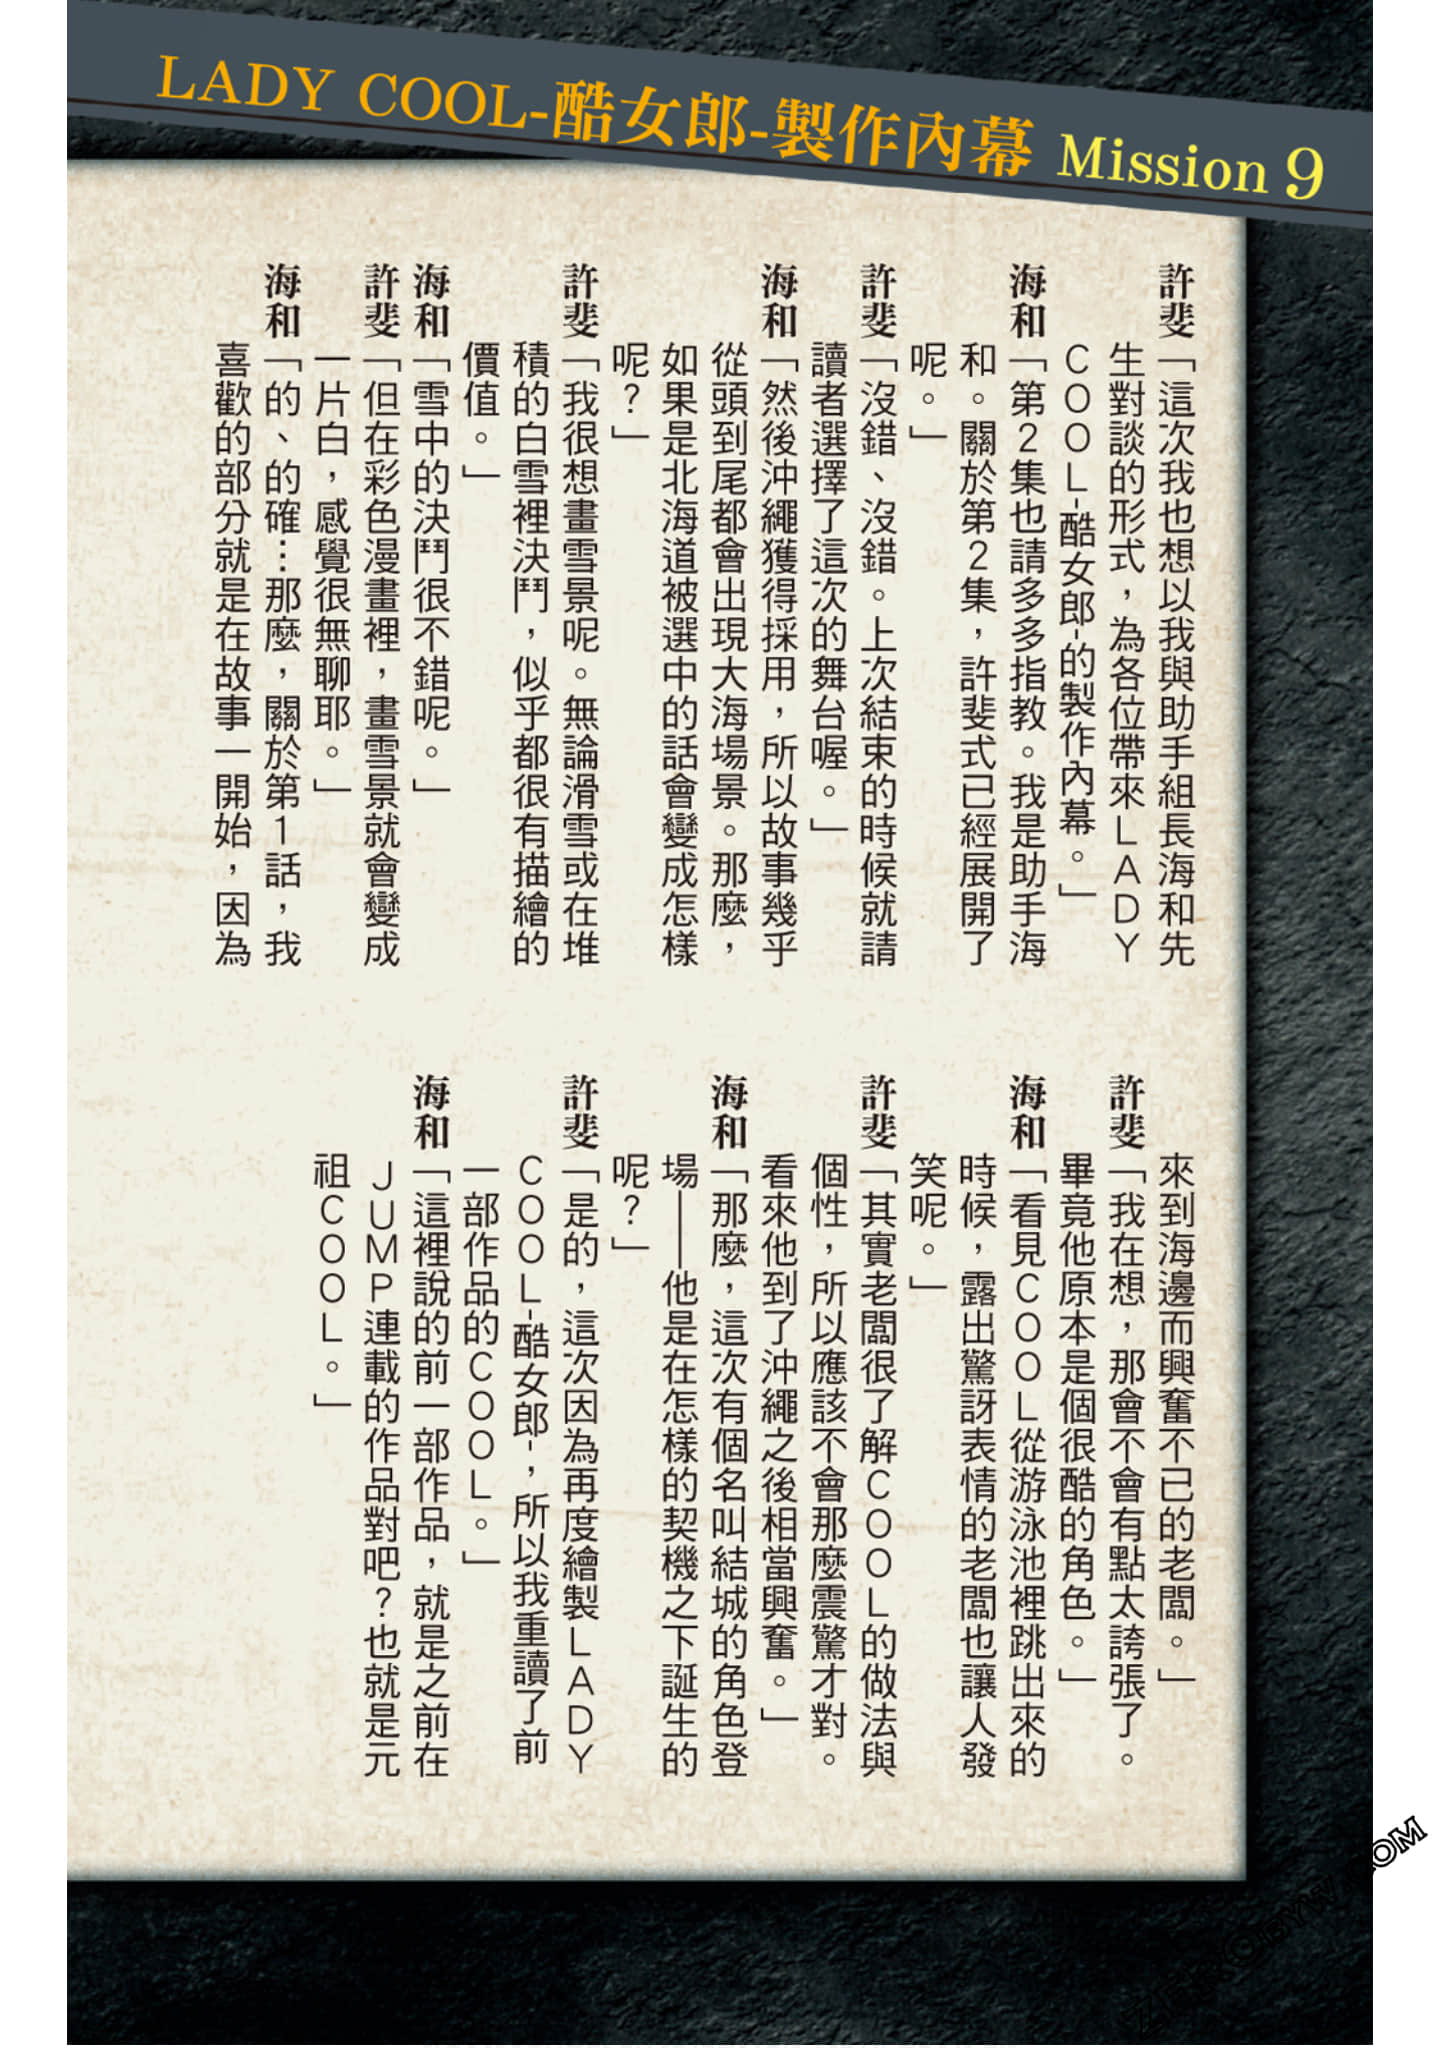 LADY COOL-酷女郎-製作內幕 Mission 9
許斐「這次我也想以我與助手組長海和先
生對談的形式，為各位帶來LADY
COOL-酷女郎-的製作內幕。」
海和「第2集也請多多指教。我是助手海
和。關於第2集，許斐式已經展開了
呢。」
許斐「沒錯、沒錯。上次結束的時候就請
讀者選擇了這次的舞台喔。」
海和「然後沖繩獲得採用，所以故事幾乎
從頭到尾都會出現大海場景。那麼，
如果是北海道被選中的話會變成怎樣
呢？」
許斐「我很想畫雪景呢。無論滑雪或在堆
積的白雪裡決鬥，似乎都很有描繪的
價值。」
海和「雪中的決鬥很不錯呢。」
許斐「但在彩色漫畫裡，畫雪景就會變成
一片白，感覺很無聊耶。」
海和「的、的確…那麼，關於第1話，我
喜歡的部分就是在故事一開始，因為
來到海邊而興奮不已的老闆。」
許斐「我在想，那會不會有點太誇張了。
畢竟他原本是個很酷的角色。」
海和「看見COOL從游泳池裡跳出來的
時候，露出驚訝表情的老闆也讓人發
笑呢。」
許斐「其實老闆很了解COOL的做法與
個性，所以應該不會那麼震驚才對。
看來他到了沖繩之後相當興奮。」
海和「那麼，這次有個名叫結城的角色登
場——他是在怎樣的契機之下誕生的
呢？」
許斐「是的，這次因為再度繪製LADY
COOL-酷女郎-，所以我重讀了前
一部作品的COOL。」
海和「這裡說的前一部作品，就是之前在
JUMP連載的作品對吧？也就是元
祖COOL。」